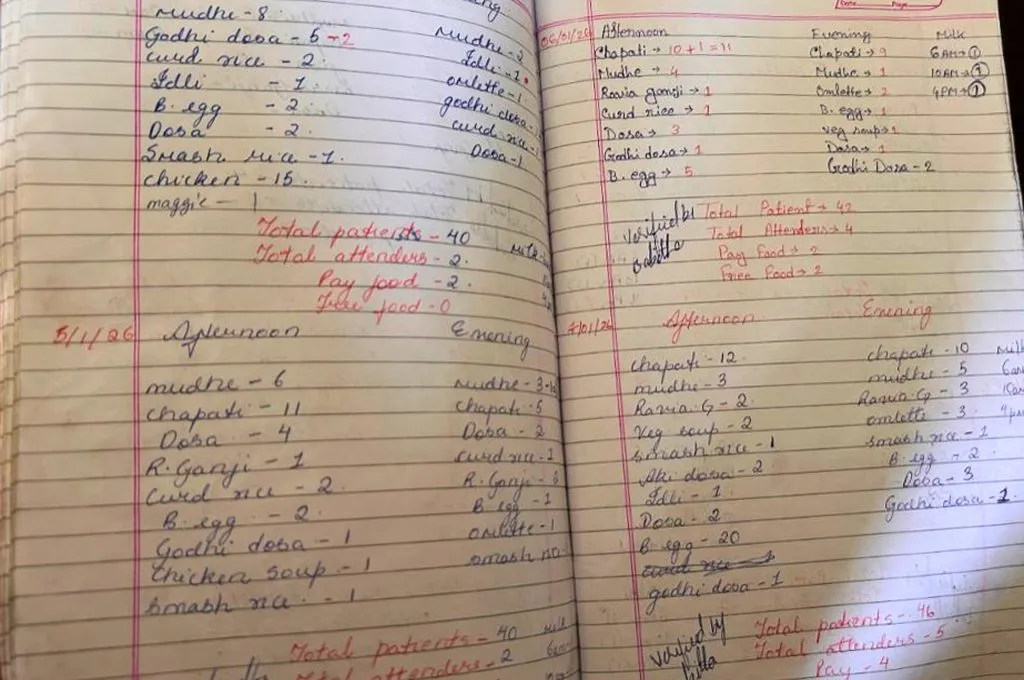 Mudhe - 8.
Godhi dosa - 5 - 2
Mudhe - 2
Curd rice - 2.
Idli - 1
Idli - 1
omlette - 1
B. egg - 2
godhi dosa -
Dosa - 2.
curd rice -
Smash rice - 1.
Dosa - 1
chicken - 15.
maggie - 1
Total patients - 40
Milk
Total attenders - 2.
Pay food - 2.
Free food - 0
5/1/26 Afternoon Evening
mudhe - 6 Mudhe - 3
chapati - 11 Chapati - 5
Dosa - 4 Dosa - 2
R. Ganji - 1 Curd rice - 1
Curd rice - 2. R. Ganji - 3
B. egg - 2. B egg - 1
Godhi dosa - 1 omlette - 1
Chicken soup - 1 smash
Smash rice - 1
Total patients - 40 Milk
attenders - 2
06/01/26 Afternoon Evening Milk
Chapati → 10 + 1 = 11 Chapati → 9 6AM → 1
Mudhe → 4 Mudhe → 1 10AM → 1
Ravia ganji → 1 Omlette → 2 4PM → 1
Curd rice → 1 B. egg → 1
Dosa → 3 Veg soup → 1
Godhi dosa → 1 Dosa → 1
B. egg → 5 Godhi Dosa - 2
verified by Total Patient → 42
Total Attenders → 4
Pay Food → 2
Free Food → 2
7/01/26 Afternoon Evening
chapati - 12. chapati - 10 Milk
mudhe - 3 mudhe - 5
Ravia. G - 2. Ravia. G - 3
Veg soup - 2 omlette - 3.
smash rice - 1 smash rice - 1
Aki dosa - 2 B. egg - 2
Idli - 1. Dosa - 3
Dosa - 2 Godhi dosa - 1.
B. egg - 20
curd rice - 1
godhi dosa - 1
verified by Total patients - 46
Total attenders - 5
Pay - 4